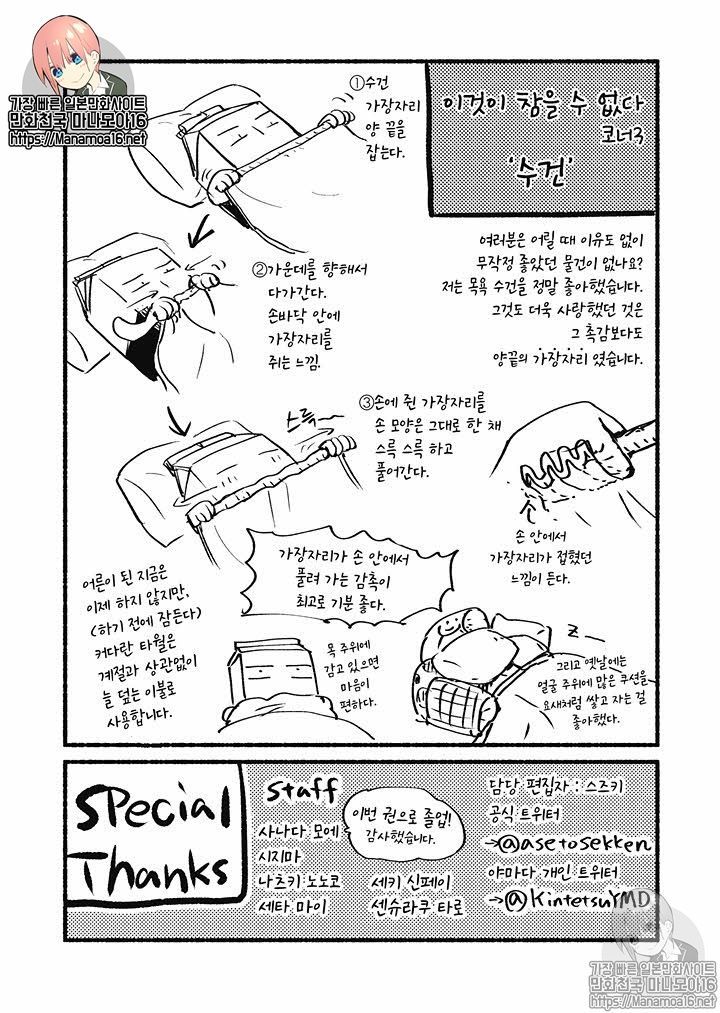 가장 빠른 일본만화사이트
만화천국 마나모아16
https://Manamoa16.net
이것이 참을 수 없다
코너3
'수건'
여러분은 어릴 때 이유도 없이
무작정 좋았던 물건이 없나요?
저는 목욕 수건을 정말 좋아했습니다.
그것도 더욱 사랑했던 것은
그 촉감보다도
양끝의 가장자리 였습니다.
①수건
가장자리
양 끝을
잡는다.
②가운데를 향해서
다가간다.
손바닥 안에
가장자리를
쥐는 느낌!
③손에 쥔 가장자리를
손 모양은 그대로 한 채
스륵 스륵 하고
풀어간다.
스륵~
손 안에서
가장자리가 접혔던
느낌이 든다.
가장자리가 손 안에서
풀려 가는 감촉이
최고로 기분 좋다.
어른이 된 지금은
이제 하지 않지만,
(하기 전에 잠든다)
커다란 타월은
계절과 상관없이
늘 덮는 이불로
사용합니다.
목 주위에
감고 있으면
마음이
편하다.
Z~
그리고 옛날에는
얼굴 주위에 많은 쿠션을
요새처럼 쌓고 자는 걸
좋아했다.
Special
Thanks
Staff
사나다 모에
시지마
나츠키 노노코
세타 마이
이번 권으로 졸업!
감사했습니다.
세키 신페이
센슈라쿠 타로
담당 편집자 : 스즈키
공식 트위터
→@asetosekken
야마다 개인 트위터
→@KintetsuYMD
가장 빠른 일본만화사이트
만화천국 마나모아16
https://Manamoa16.net